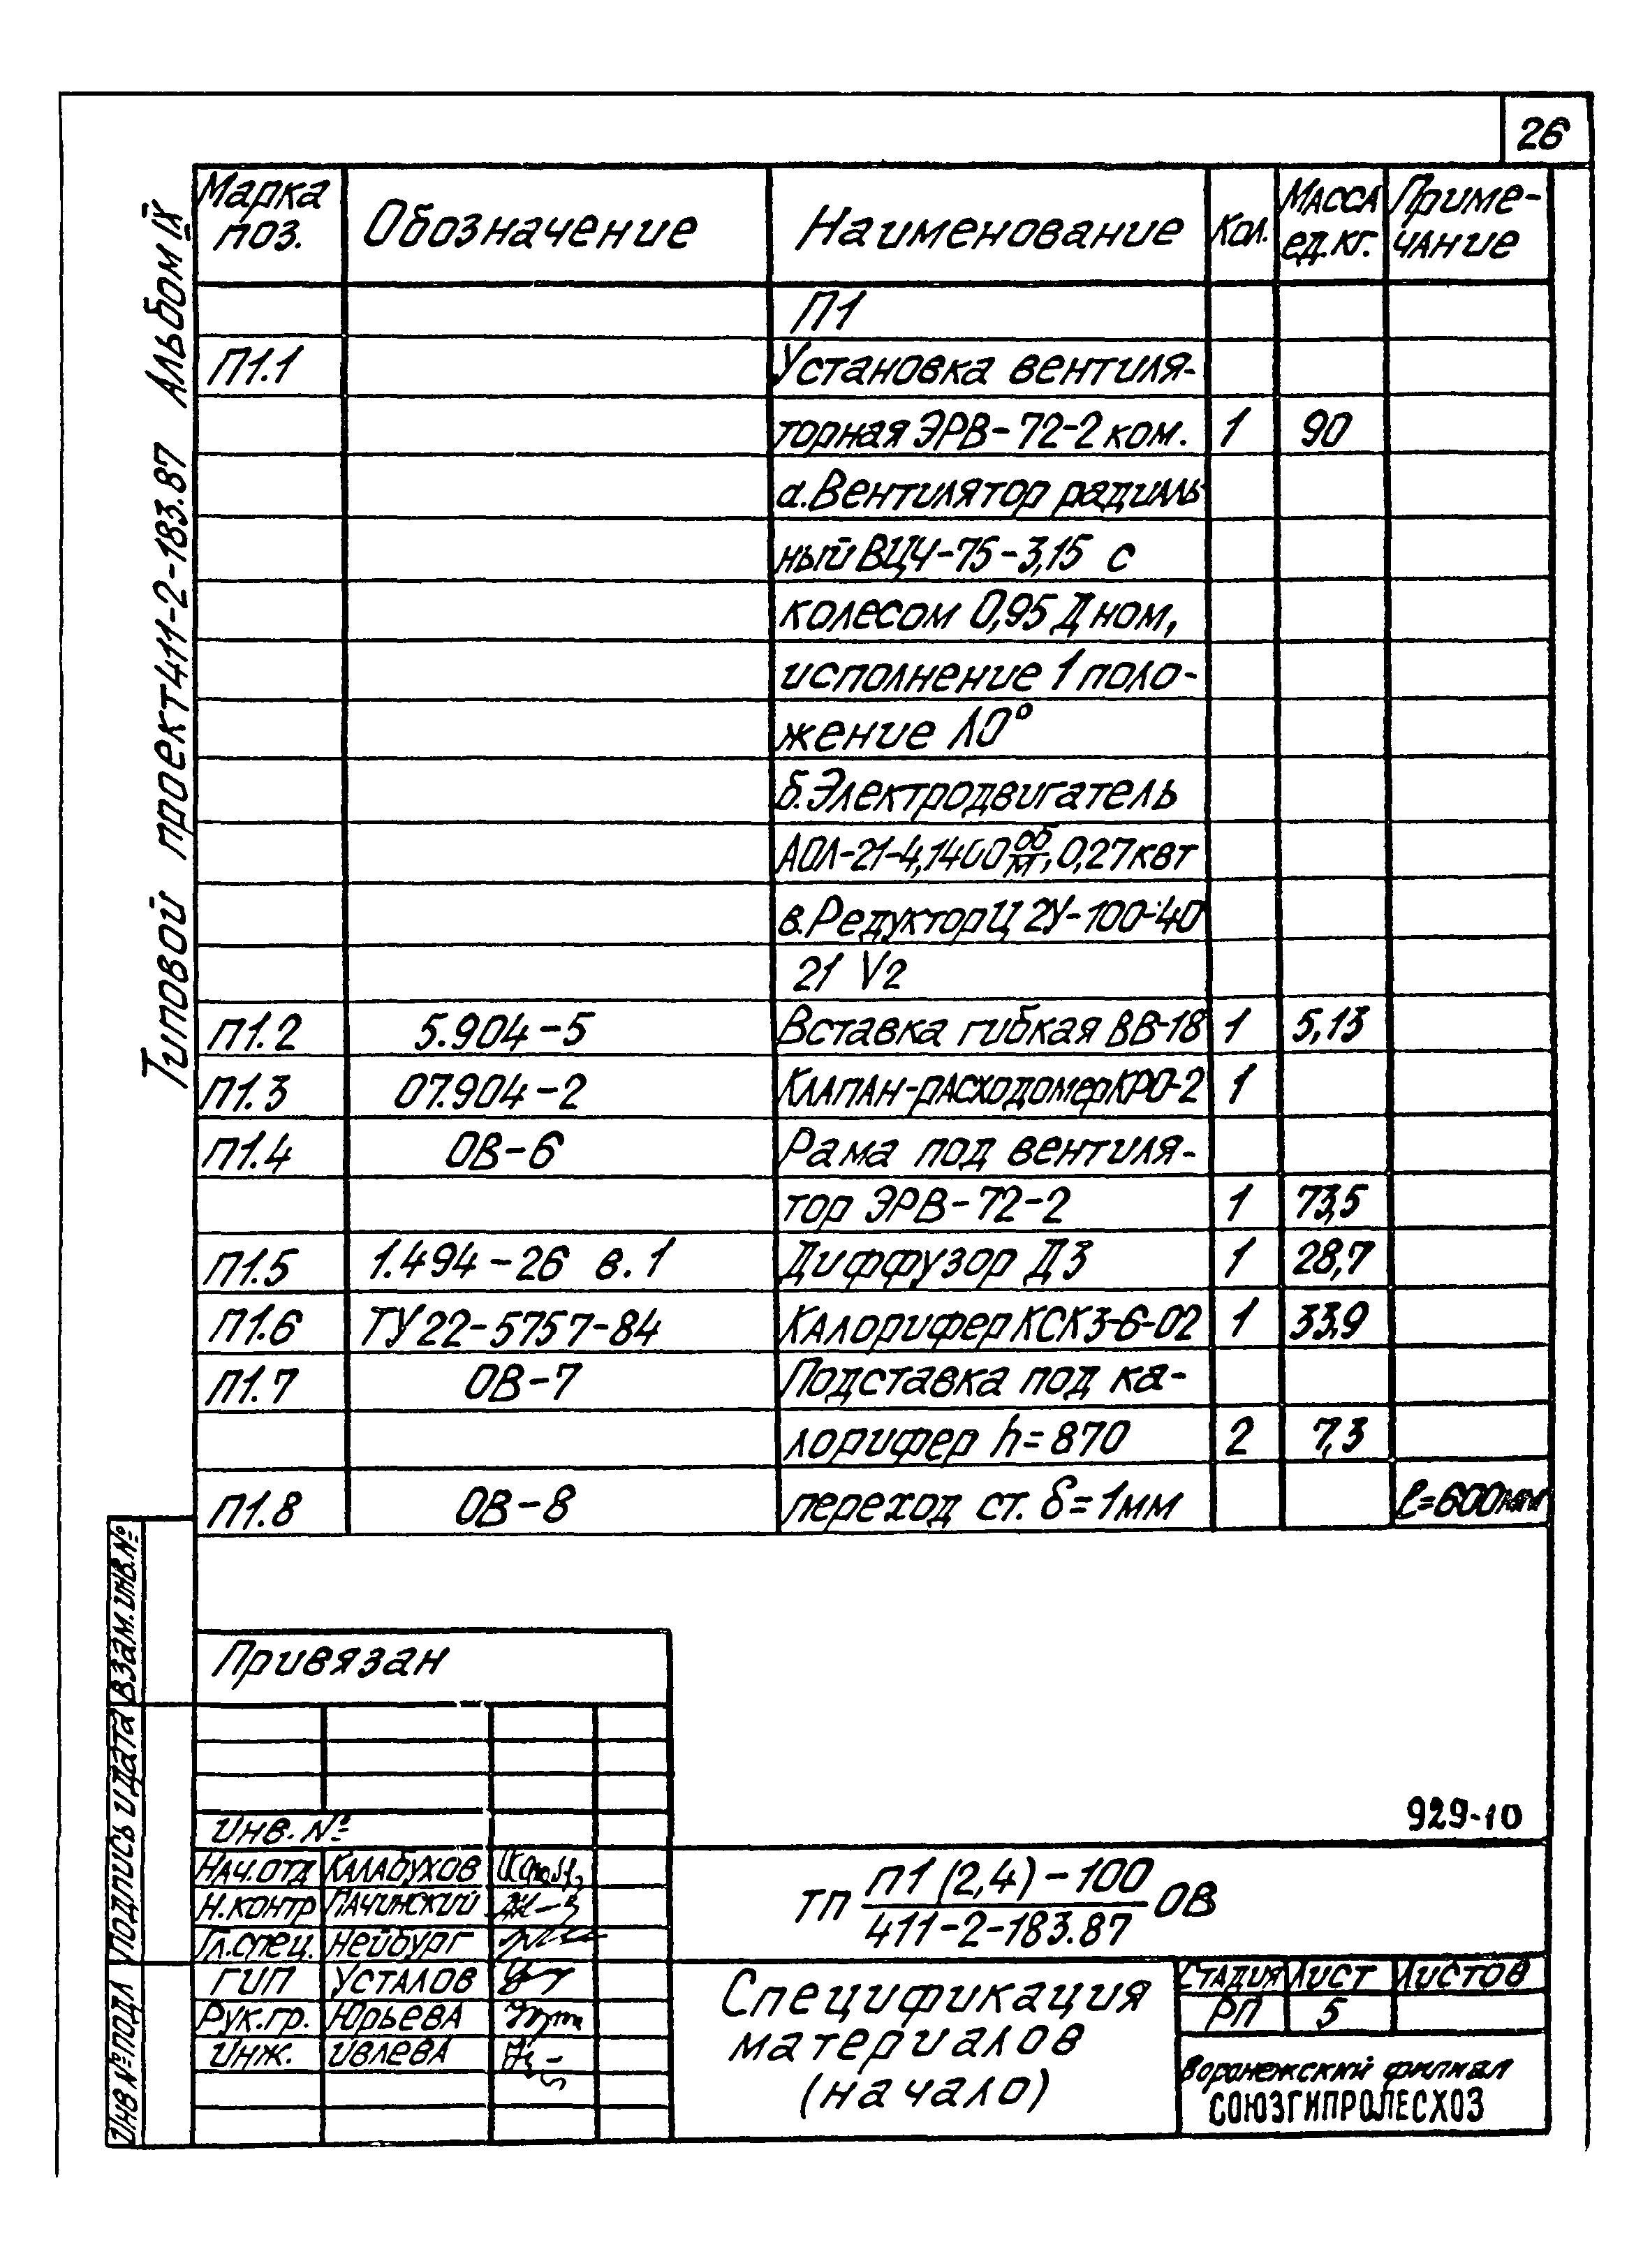 26
Типовой проект 411-2-183.87 Альбом IX
Марка поз. Обозначение Наименование Кол. Масса ед.кг. Примечание
П1
П1.1 Установка вентиля-
торная ЭРВ-72-2 ком. 1 90
а.Вентилятор радиаль
ный ВЦ4-75-3,15 с
колесом 0,95 Дном,
исполнение 1 поло-
жение Л0°
б.Электродвигатель
АОЛ-21-4, 1400 об/м, 0,27квт
в.Редуктор Ц2У-100-40
21 У2
П1.2 5.904-5 Вставка гибкая ВВ-18 1 5,13
П1.3 07.904-2 Клапан-расходомер КРО-2 1
П1.4 ОВ-6 Рама под вентиля-
тор ЭРВ-72-2 1 73,5
П1.5 1.494-26 в.1 Диффузор Д3 1 28,7
П1.6 ТУ 22-5757-84 Калорифер КСК3-6-02 1 33,9
П1.7 ОВ-7 Подставка под ка-
лорифер h=870 2 7,3
П1.8 ОВ-8 переход ст. δ=1мм ℓ=600мм
Взам.инв.№
Подпись и дата
Инв № подл
Привязан
Инв. №
929-10
Нач.отд Калабухов
Н.контр Пачинский
Гл.спец. Нейбург
ГИП Усталов
Рук.гр. Юрьева
Инж. Ивлева
ТП П1 (2,4)-100 / 411-2-183.87 ОВ
Спецификация
материалов
(начало)
Стадия Лист Листов
РП 5
Воронежский филиал
СОЮЗГИПРОЛЕСХОЗ